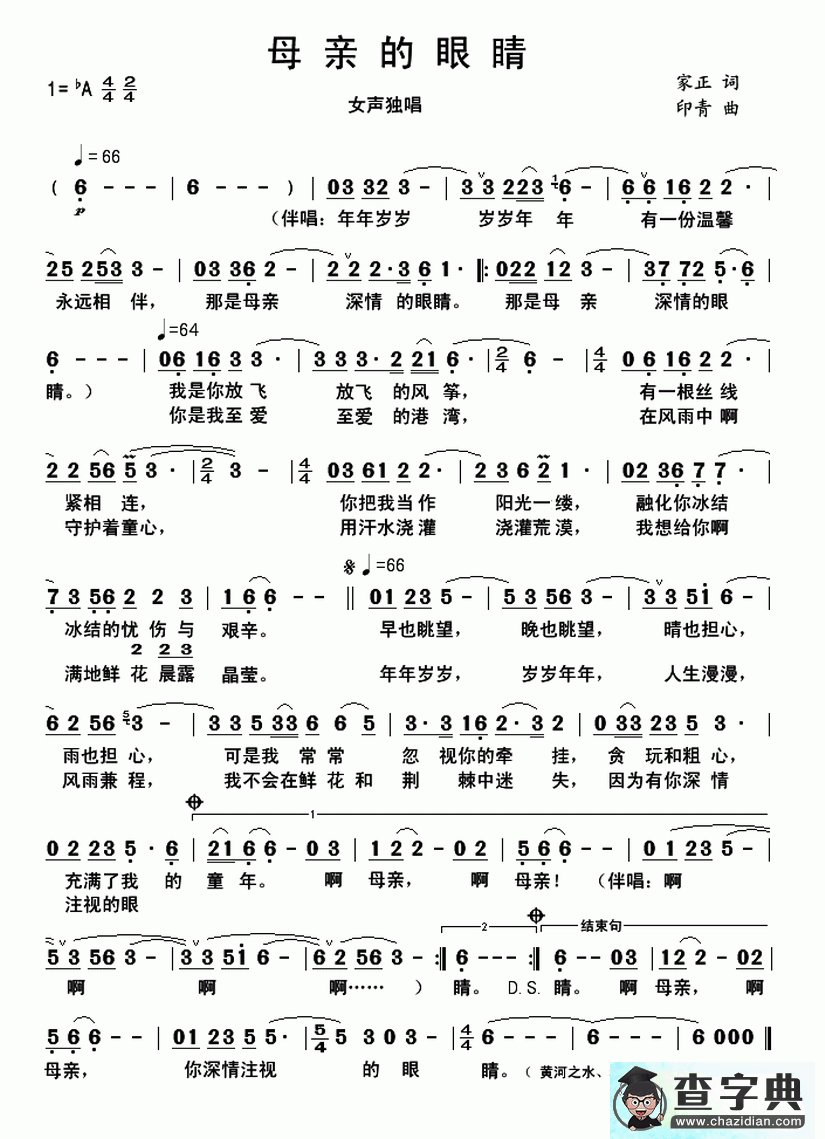 母亲的眼睛
1=♭A 4/4 2/4
女声独唱
家正 词
印青 曲
♩=66
( 6 - - - | 6 - - - ) | 03 32 3 - | 3 3 223 1 6 - | 6 6 16 2 2 · |
(伴唱：年年岁岁 岁岁年 年 有一份温馨
25 253 3 - | 03 36 2 - | 2 2 2·3 6 1 · ‖: 022 12 3 - | 37 72 5 · 6 |
永远相 伴， 那是母亲 深情 的眼睛。 那是母 亲 深情的眼
♩=64
6 - - - | 06 16 3 3 · | 3 3 3·2 221 6 · | 2/4 6 - | 4/4 06 16 2 2 · |
睛。） 我是你放飞 放飞 的风 筝， 有一根丝线
你是我至爱 至爱 的港 湾， 在风雨中啊
2 2 56 5 3 · | 2/4 3 - | 4/4 03 61 2 2 · | 2 3 6 2 1 · | 02 36 7 7 · |
紧相 连， 你把我当作 阳光一缕， 融化你冰结
守护着童心， 用汗水浇灌 浇灌荒漠， 我想给你啊
𝄋 ♩=66
7 3 56 2 2 3 | 1 6 6 - - ‖ 01 23 5 - | 5 3 56 3 - | 3 3 51 6 - |
冰结的忧 伤 与 艰辛。 早也眺望， 晚也眺望， 晴也担心，
2 2 3
满地鲜 花 晨露 晶莹。 年年岁岁， 岁岁年年， 人生漫漫，
6 2 56 5 3 - | 3 3 5 33 6 6 5 | 3· 3 16 2·3 2 | 0 33 23 5 3 · |
雨也担 心， 可是我 常 常 忽 视你的牵 挂， 贪 玩和粗 心，
风雨兼 程， 我不会在鲜 花 和 荆 棘中迷 失， 因为有你深 情
1
02 23 5 · 6 | 21 6 - 03 | 1 2 2 - 02 | 5 6 6 - - | 01 23 5 - |
充满了我 的 童 年。 啊 母亲， 啊 母亲！ （伴唱：啊
注视的眼
2 结束句
5 3 56 3 - | 3 3 51 6 - | 6 2 56 3 - :‖ 6 - - - :‖ 6 - - 03 | 12 2 - 02 |
啊 啊 啊…… ） 睛。 D.S. 睛。 啊 母亲， 啊
5 6 6 - - | 01 23 5 5 · | 5/4 5 3 0 3 - | 4/4 6 - - - | 6 - - - | 6 0 0 0 ‖
母亲， 你深情注视 的 眼 睛。（ 黄河之水、
查字典
www.chazidian.com